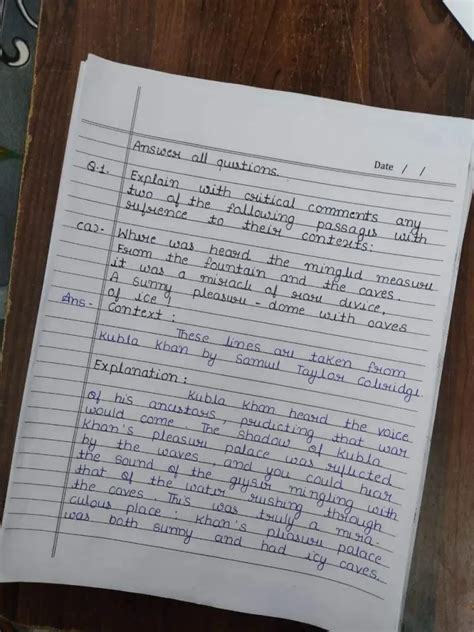 Date / /
Answer all qustions..
Q.1. Explain with critical comments any
two of the following passages with
reference to their contexts:
(a)- Where was heard the mingled measure
From the fountain and the caves.
it was a miracle of rare device,
A sunny pleasure-dome with caves
of ice!
Ans- Context:
These lines are taken from
Kubla Khan by Samul Taylor Coleridge.
Explanation:
Kubla Khan heard the voice
of his ancestors, predicting that war
would come. The shadow of Kubla
Khan's pleasure palace was reflected
by the waves, and you could hear
the sound of the geyser mingling with
that of the water rushing through
the caves. This was truly a mira-
culous place: Khan's pleasure palace
was both sunny and had icy caves.